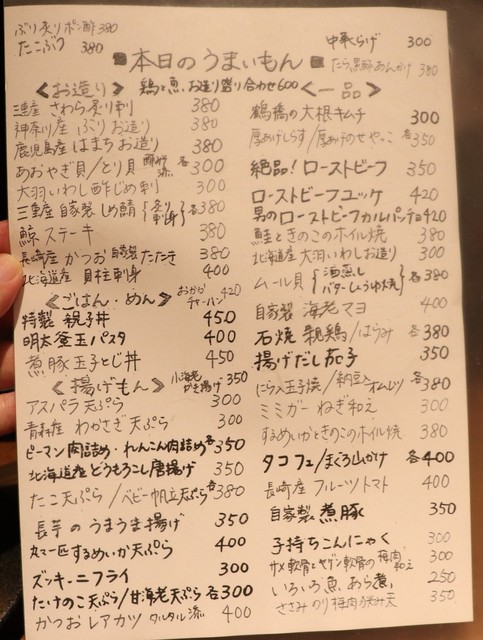 ぶり炙りポン酢 380
たこぶつ 380
■本日のうまいもん■
中華くらげ 300
たら黒酢あんかけ 380
《お造り》 鶏と魚、お造り盛り合わせ600
三重産 さわら炙り刺 380
神奈川産 ぶりお造り 380
鹿児島産 はまちお造り 380
あおやぎ貝/とり貝 酢味噌添 各300
大羽いわし酢じめ刺 300
三重産 自家製 しめ鯖{炙り 刺身}各380
鯨ステーキ 380
長崎産 かつお 自家製 たたき 380
北海道産 貝柱刺身 400
《ごはん・めん》 おかか チャーハン 420
特製 親子丼 450
明太釜玉パスタ 400
煮豚玉子とじ丼 450
《揚げもん》 小海老 かき揚げ 350
アスパラ天ぷら 300
青森産 わかさぎ天ぷら 300
ピーマン肉詰め・れんこん肉詰め 各350
北海道産どうもろこし唐揚げ 350
たこ天ぷら/ベビー帆立天ぷら 各380
長芋のうまうま揚げ 350
丸々一匹 するめいか天ぷら 400
ズッキーニフライ 300
たけのこ天ぷら/甘海老天ぷら 各300
かつおレアカツ タルタル添 400
《一品》
鶴橋の大根キムチ 300
厚あげしらす/厚あげのせやっこ 各350
絶品!ローストビーフ 350
ローストビーフユッケ 420
男のローストビーフカルパッチョ 420
鮭ときのこのホイル焼 380
北海道産 大羽いわしお造り 300
ムール貝{酒蒸し バターしょうゆ焼}各380
自家製 海老マヨ 400
石焼 親鶏/はらみ 各380
揚げだし茄子 350
にら入玉子焼/納豆入オムレツ 各380
ミミガーねぎ和え 300
するめいかときのこのホイル焼 380
タコフェ/まぐろ山かけ 各400
長崎産 フルーツトマト 400
自家製 煮豚 350
子持ちこんにゃく 300
サメ軟骨とヤゲン軟骨の梅肉和え 300
いろいろ魚、あら煮、 250
ささみのり梅肉挟み天 350